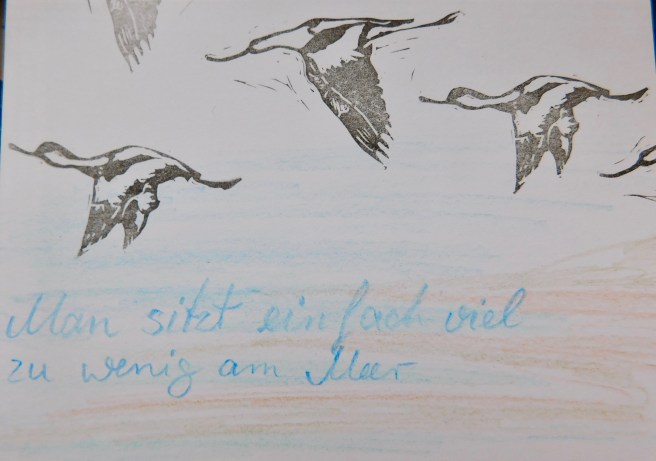 Man sitzt einfach viel
zu wenig am Meer